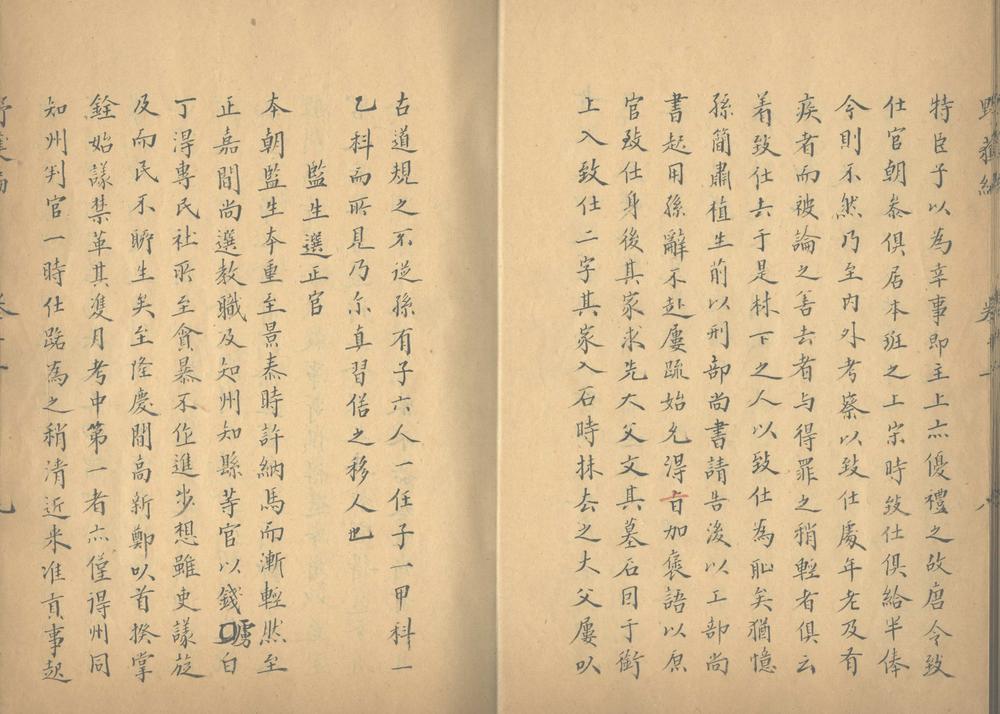 野獲編 卷十一 八
特臣子以為幸事即主上亦優禮之故唐令致
仕官朝叅俱居本班之上宋時致仕俱給半俸
今則不然乃至内外考察以致仕處年老及有
疾者而被論之善去者与得罪之稍輕者俱云
着致仕去于是林下之人以致仕為恥矣猶憶
孫簡肅植生前以刑部尚書請告後以工部尚
書起用孫辭不赴屢疏始允得旨加褒語以原
官致仕身後其家求先大父文其墓石曰于銜
上入致仕二字其家入石時抹去之大父屢以
古道規之不從孫有子六人一任子一甲科一
乙科而所見乃尔真習俗之移人也
監生選正官
本朝監生本重至景泰時許納馬而漸輕然至
正嘉間尚選教職及知州知縣等官以錢虜白
丁得專民社所至貪暴不作進步想雖吏議旋
及而民不聊生矣至隆慶間高新鄭以首揆掌
銓始議禁革其雙月考中第一者亦僅得州同
知州判官一時仕路為之稍清近来准貢事起
野獲編 卷十一 九